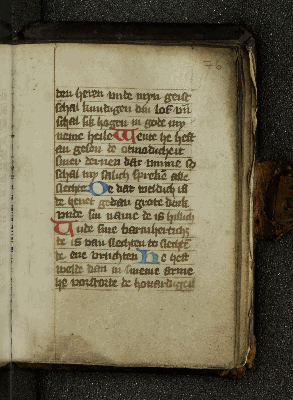 den heren unde myn geist
schal kundigen din lof un
schal sik hogen in gode my
neme heile Wente he heft
an geseen de otmodicheit
siner dernen dar umme so
schal my salich spreken alle
slechte De dar weldich is
de hevet gedan grote dink
unde sin name de is hillich
Unde sine barmherticheit
de is van slechten to slechte
de ene vruchten He heft
welde dan in sineme arme
he vorstorde de hovardigen